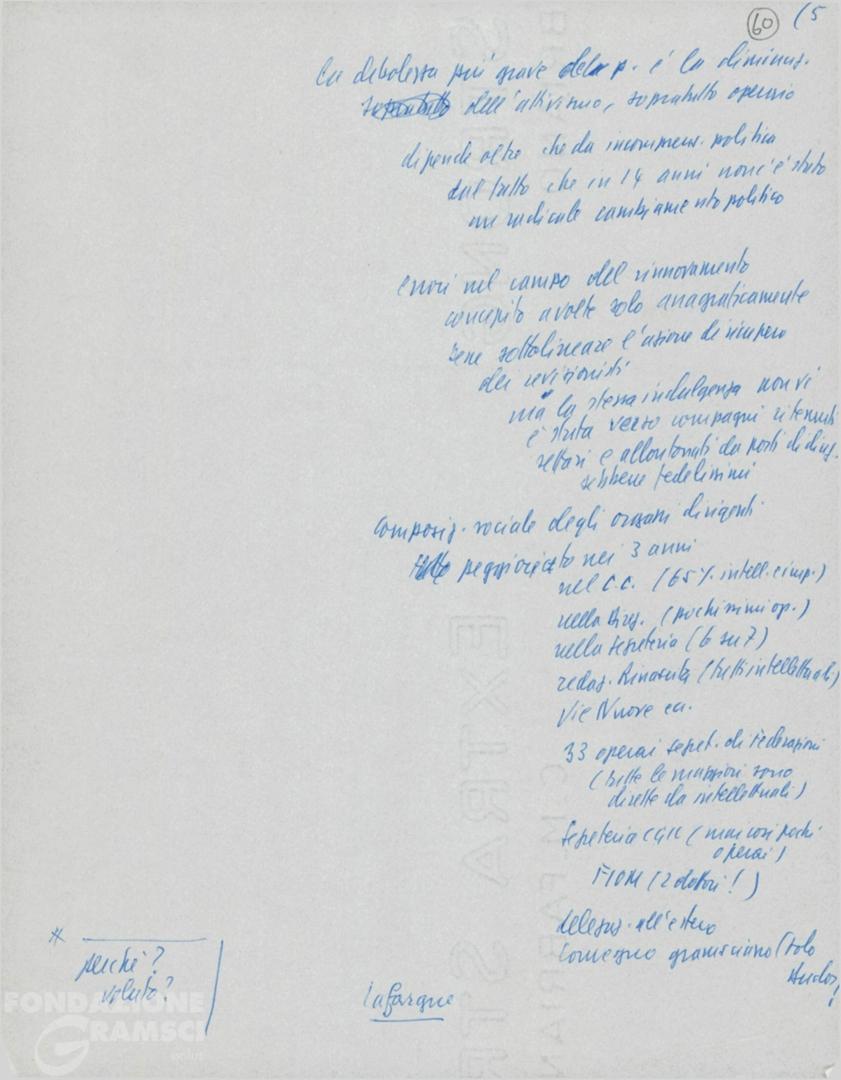 60 (5
La debolezza più grave del p. è la diminuz.
dell'attivismo, sopratutto operaio
dipende oltre che da incomprens. politica
dal fatto che in 14 anni non c'è stato
un radicale cambiamento politico
errori nel campo del rinnovamento
concepito a volte solo anagraficamente
bene sottolineare l'azione di ricupero
dei revisionisti
ma la stessa indulgenza non vi
è stata verso compagni ritenuti
settari e allontanati da posti di direz.
sebbene fedelissimi
composiz. sociale degli organi dirigenti
peggiorata nei 3 anni
nel C.C. (65% intell. e imp.)
nella Direz. (pochissimi op.)
nella segreteria (6 su 7)
redaz. Rinascita (tutti intellettuali)
Vie Nuove ecc.
33 operai segret. di Federazioni
(tutte le maggiori sono
dirette da intellettuali)
Segreteria CGIL (mai così pochi
operai)
FIOM (2 dottori!)
delegaz. all'estero
Convegno gramsciano (solo
* perché?
voluto?
Lafargue
FONDAZIONE
GRAMSCI
onlus
BRIANO C.M.FABRIANO
EXTRA